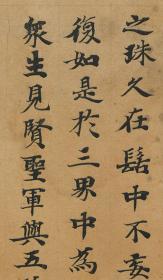 之珠久在髻中不妄
復如是於三界中為
衆生見賢聖軍興五